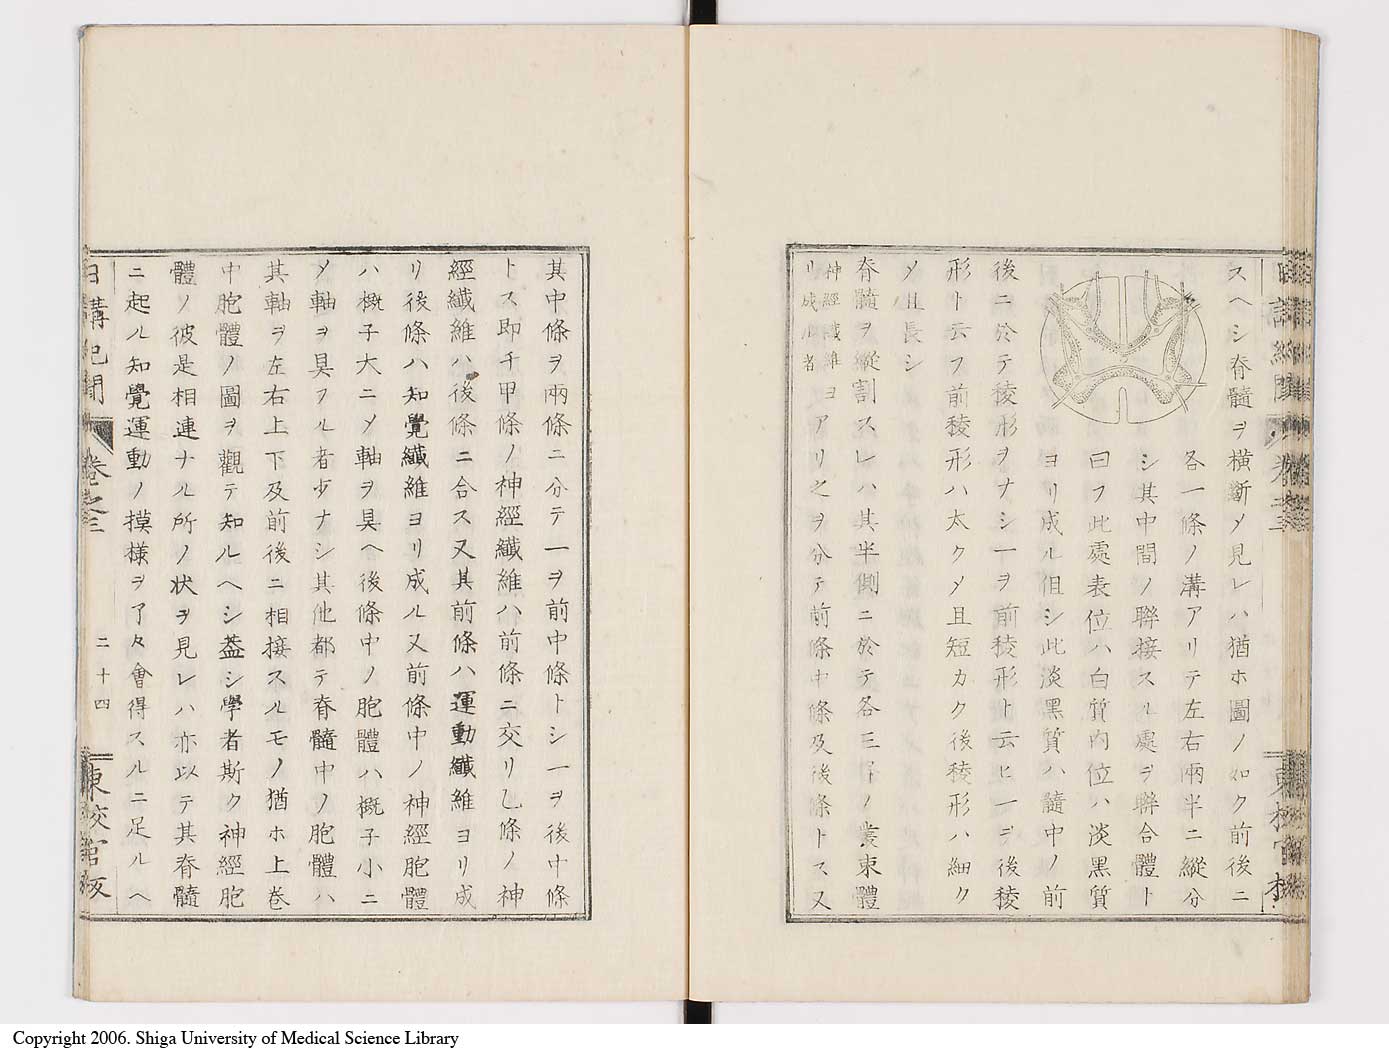 スヘシ脊髓ヲ横斷メ見レハ猶ホ圖ノ如ク前後ニ
各一條ノ溝アリテ左右兩半ニ縱分
シ其中間ノ聯接スル處ヲ聯合體ト
曰フ此處表位ハ白質内位ハ淡黒質
ヨリ成ル但シ此淡黒質ハ髓中ノ前
後ニ於テ稜形ヲナシ一ヲ前稜形ト云ヒ一ヲ後稜
形ト云フ前稜形ハ太クメ且短カク後稜形ハ細ク
メ且長シ
脊髓ヲ縱割スレハ其半側ニ於テ各三條ノ叢束體
神經纎維ヨ
リ成ル者
アリ之ヲ分テ前條中條及後條トス又
其中條ヲ兩條ニ分テ一ヲ前中條トシ一ヲ後中條
トス即チ甲條ノ神經纎維ハ前條ニ交リ乙條ノ神
經纎維ハ後條ニ合ス又其前條ハ運動纎維ヨリ成
リ後條ハ知覺纎維ヨリ成ル又前條中ノ神經胞體
ハ概子大ニメ軸ヲ具ヘ後條中ノ胞體ハ概子小ニ
メ軸ヲ具フル者少ナシ其他都テ脊髓中ノ胞體ハ
其軸ヲ左右上下及前後ニ相接スルモノ猶ホ上巻
中胞體ノ圖ヲ觀テ知ルヘシ蓋シ學者斯ク神經胞
體ノ彼是相連ナル所ノ状ヲ見レハ亦以テ其脊髓
ニ起ル知覺運動ノ摸様ヲ了々會得スルニ足ルヘ
日講紀聞
卷之三
二十四
東校官板